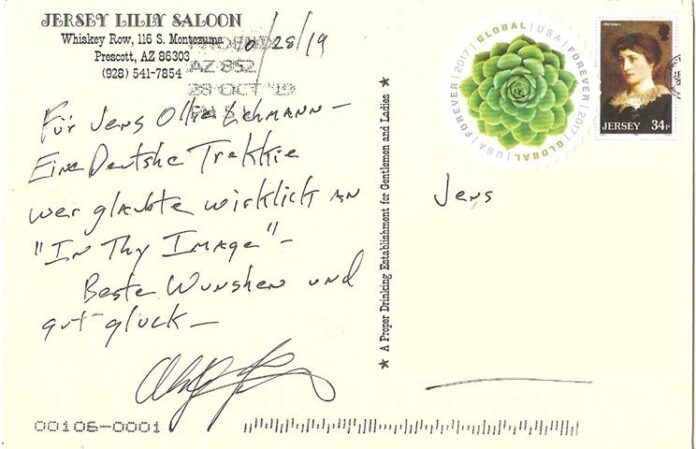 JERSEY LILLY SALOON
Whiskey Row, 116 S. Montezuma
Prescott, AZ 86303
(928) 541-7854
10/28/19
AZ 852
28 OCT '19
Für Jens Lehmann –
Eine Deutshe Trekkie
wer glaubte wirklick an
"In Thy Image" –
Beste Wunshen und
gut gluck –
00106-0001
★ A Proper Drinking Establishment for Gentlemen and Ladies ★
GLOBAL | USA | FOREVER | 2017 | GLOBAL | USA | FOREVER | 2017
JERSEY 34P
Jens